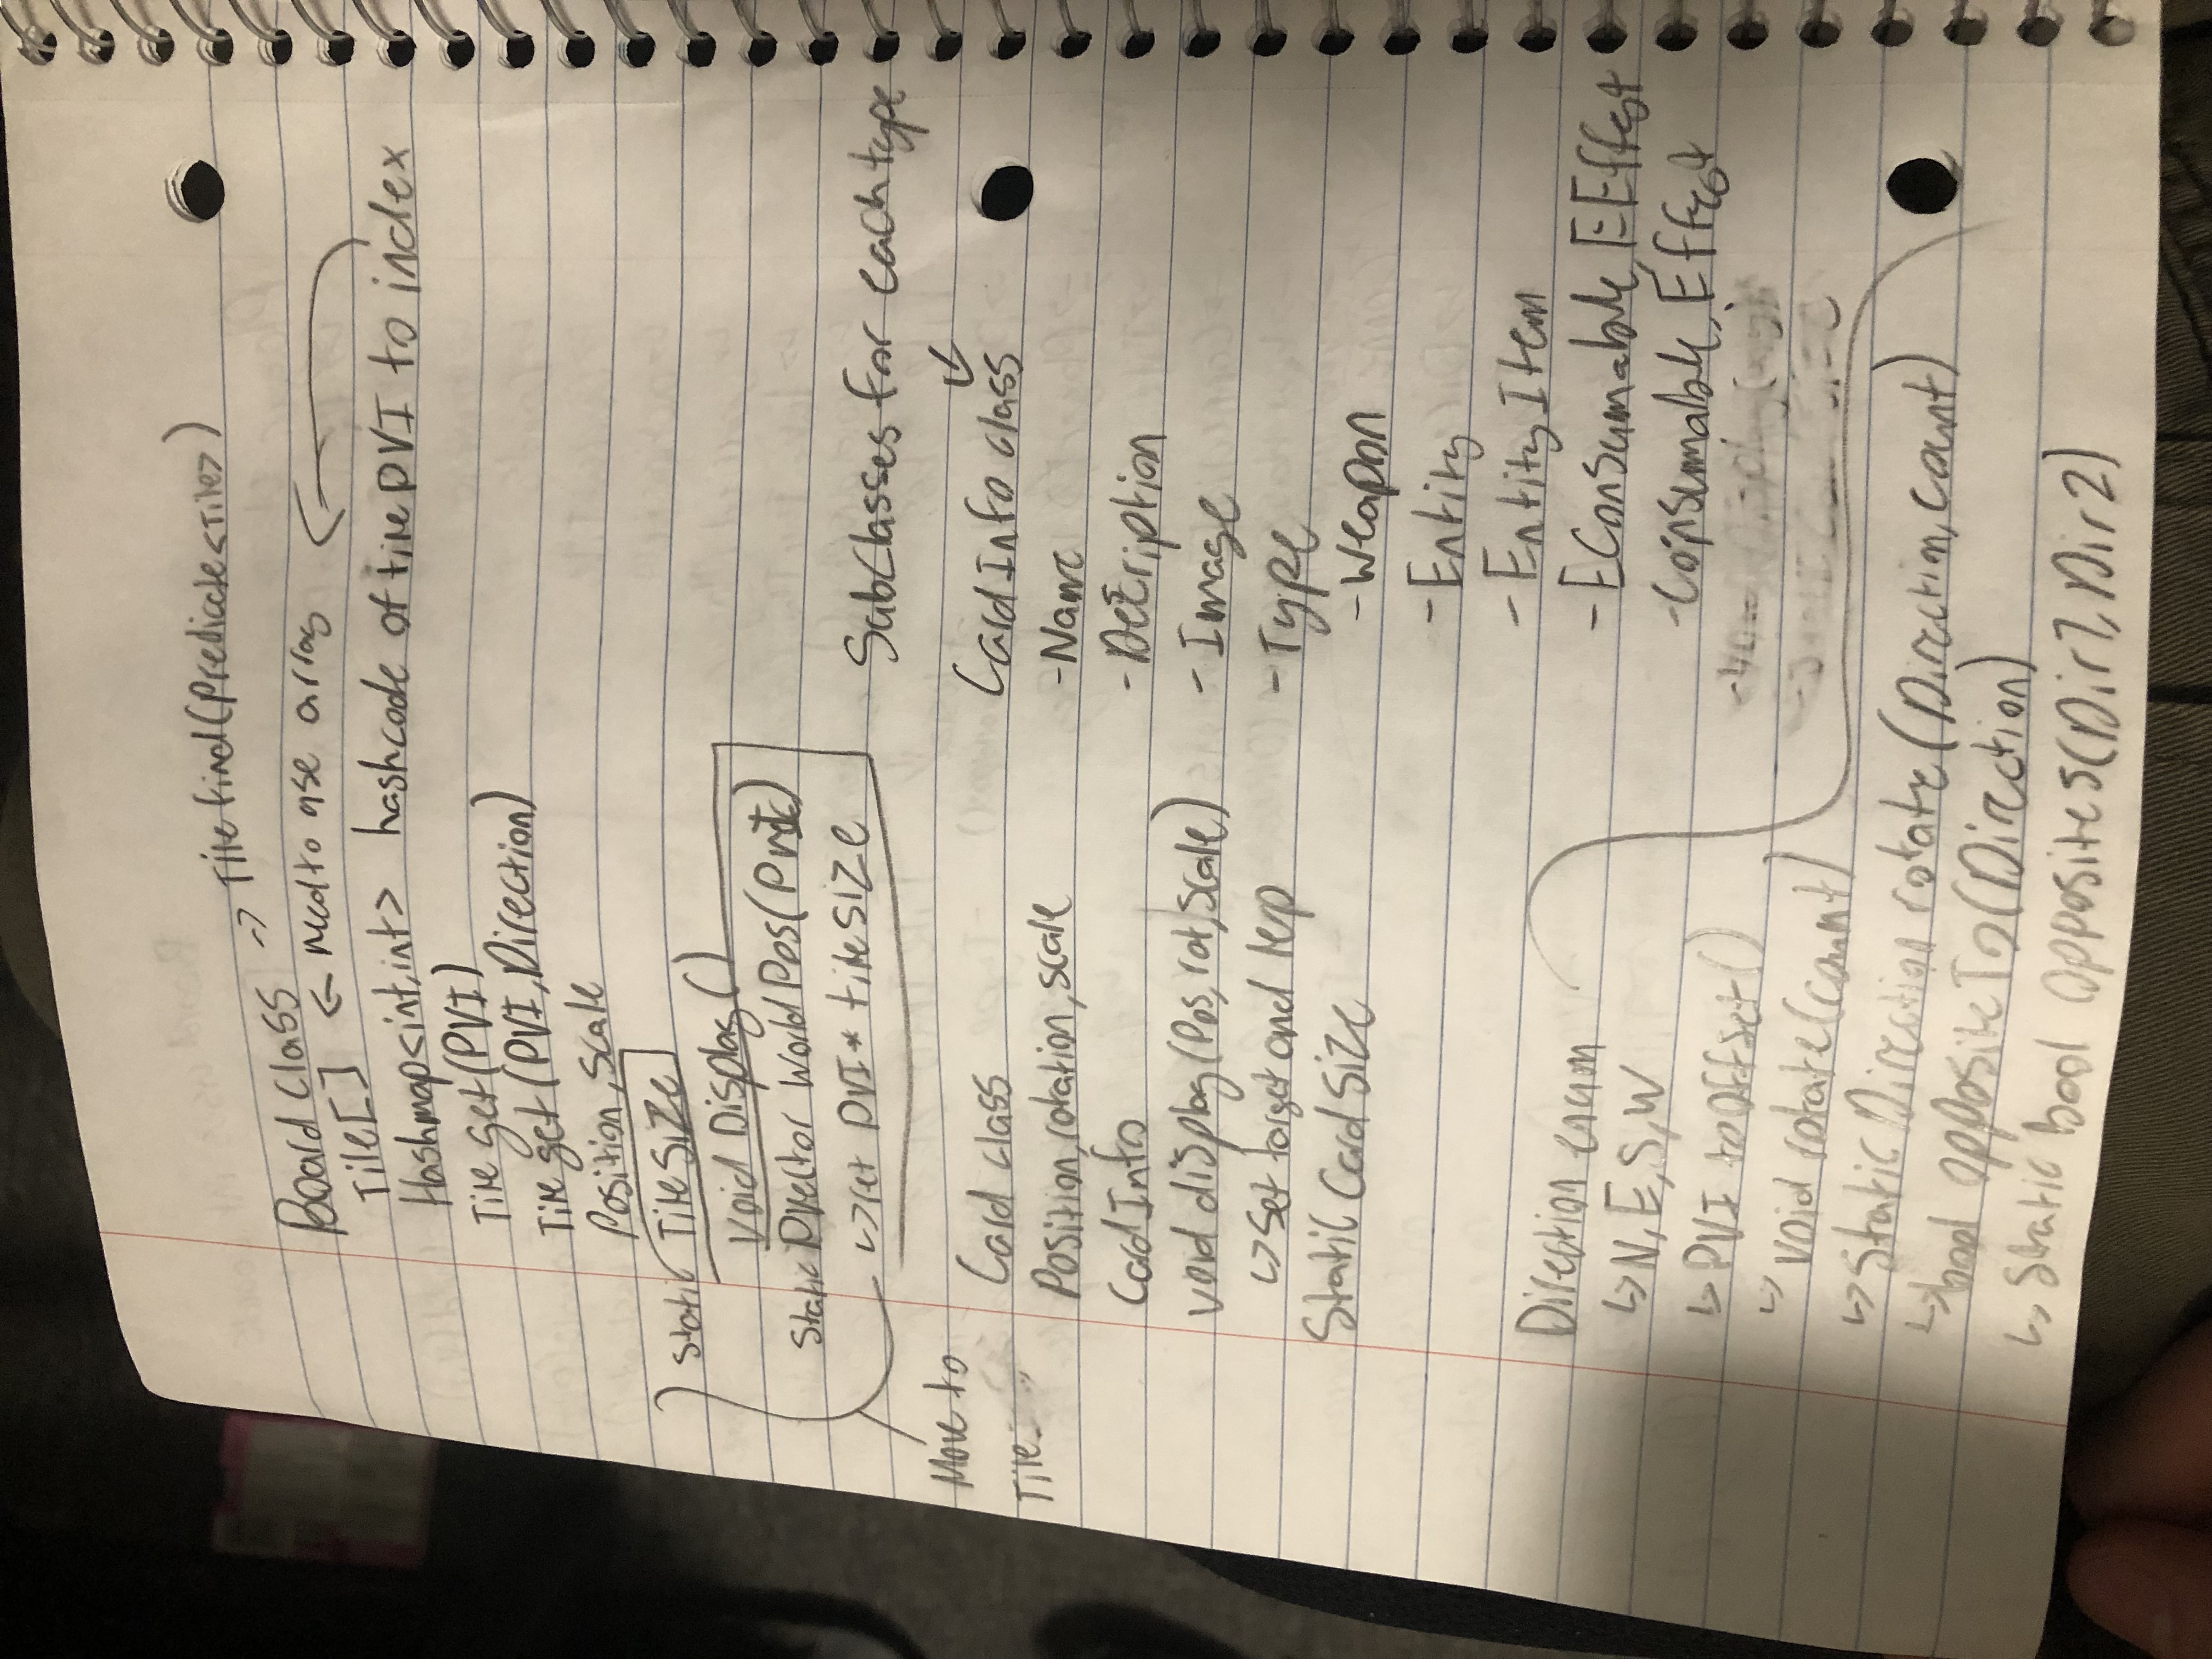 Board class -> Tile find(Predicate<Tile>)
Tile[] <- need to use array
Hashmap<int,int> hashcode of tile PVI to index
Tile get(PVI)
Tile get(PVI, Direction)
Position, Scale
Static TileSize
void Display()
Static PVector WorldPos(PVI)
↳ret PVI * tileSize
Move to
Tile
Card class
Position, rotation, scale
CardInfo
void display(Pos, rot, scale)
↳Set target and lerp
Static CardSize
SubClasses for each type
CardInfo class
-Name
-Description
-Image
-Type
-Weapon
-Entity
-EntityItem
-EConsumable, EEffect
-Consumable, Effect
Direction enum
↳N, E, S, W
↳PVI toOffset()
↳void rotate(count)
↳Static Direction rotate(Direction, count)
↳bool oppositeTo(Direction)
↳Static bool opposites(Dir1, Dir2)